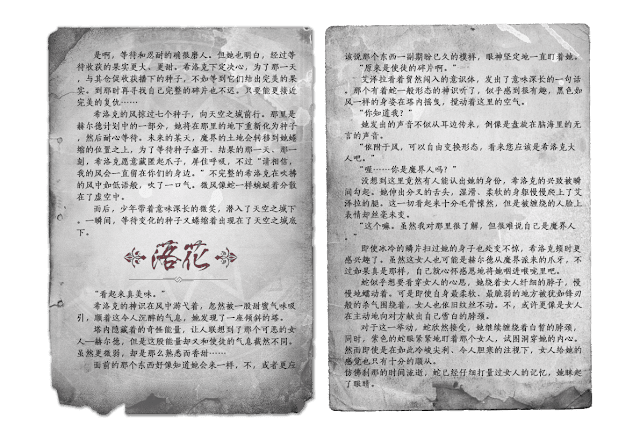 是啊，等待和忍耐的确很磨人。但她也明白，经过等
待收获的果实更大、更甜。希洛克下定决心，为了那一天
，与其仓促收获播下的种子，不如等到它们结出完美的果
实。到那时再寻找自己完整的碎片也不迟。只要能更接近
完美的复仇……
希洛克的风掠过七个种子，向天空之城前行。那里是
赫尔德计划中的一部分，她将在那里的地下重新化为种子
，然后耐心等待。未来的某天，魔界的土地会转移到她蜷
缩的位置之上，为了等待种子盛开、结果的那一天、那一
刻，希洛克愿意藏匿起爪子，屏住呼吸，不过“请相信，
我的风会一直留在你们的身边。”不完整的希洛克在吹拂
的风中如低语般，吹了一口气。微风像蛇一样蜿蜒着分散
在了虚空中。
而后，少年带着意味深长的微笑，潜入了天空之城下
。一瞬间，等待变化的种子又蜷缩着出现在了天空之城底
下。
落花
“看起来真美味。”
希洛克的神识在风中游弋着，忽然被一股甜蜜气味吸
引，顺着这令人沉醉的气息，她发现了一座倾斜的塔。
塔内隐藏着的奇怪能量，让人联想到了那个可恶的女
人—赫尔德，但是这股能量却又和使徒的气息截然不同。
虽然更微弱，却是那么熟悉而香甜……
面前的那个东西好像知道她会来一样，不，或者更应
该说那个东西一副期盼已久的模样，眼神坚定地一直盯着她。
“原来是使徒的碎片啊。”
艾泽拉看着贸然闯入的意识体，发出了意味深长的一句话
。那个有着蛇一般形态的神识听了，似乎感到很有趣，黑色如
风一样的身姿在塔内摇曳，搅动着这里的空气。
“你知道我？”
她发出的声音不似从耳边传来，倒像是盘旋在脑海里的无
言的声音。
“依附于风，可以自由变换形态，看来您应该是希洛克大
人吧。”
“喔……你是魔界人吗？”
没想到这里竟然有人能认出她的身份，希洛克的兴致被瞬
间勾起。她伸出分叉的舌头，湿滑、柔软的身躯慢慢爬上了艾
泽拉的腿。这一切看起来十分毛骨悚然，但是被缠绕的人脸上
表情却丝毫未变。
“这个嘛。虽然我对那里很了解，但很难说自己是魔界人
。”
即使冰冷的鳞片扫过她的身子也处变不惊，希洛克顿时更
感兴趣了。虽然这女人也可能是赫尔德从魔界派来的爪牙，不
过如果真是那样，自己就心怀感恩地将她咽进喉咙里吧。
蛇似乎想要看穿女人的心思，缠绕着女人纤细的脖子，慢
慢地蠕动着。可是即使自身最柔软、最脆弱的地方被犹如锋刃
般的杀气团团缠绕着，女人也依旧纹丝不动。不，或许更像是女人
在主动地向对方献出自己雪白的脖颈。
对于这一举动，蛇欣然接受，她继续缠绕着白皙的脖颈，
同时，紫色的蛇眼紧紧地盯着那个女人，试图洞穿她的内心。
然而即使是在如此冷峻尖利、令人胆寒的注视下，女人给她的
感觉也只有十分的顺从。
仿佛刹那的时间流逝，蛇已经仔细打量过女人的记忆，她眯起
了眼睛。